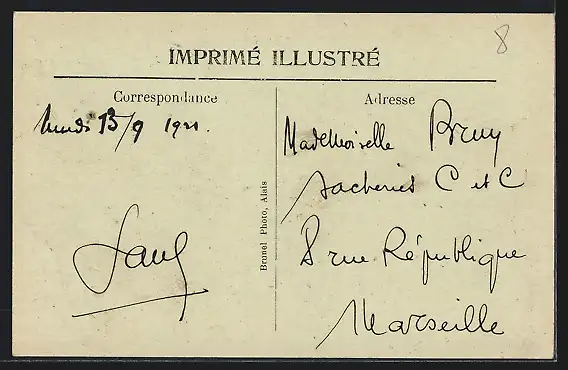 8
IMPRIMÉ ILLUSTRÉ
Correspondance
Adresse
lundi 13/9 1921.
Mademoiselle Bruy
Sacheries C et C
8 rue République
Marseille
Saul
Brunel Photo, Alais